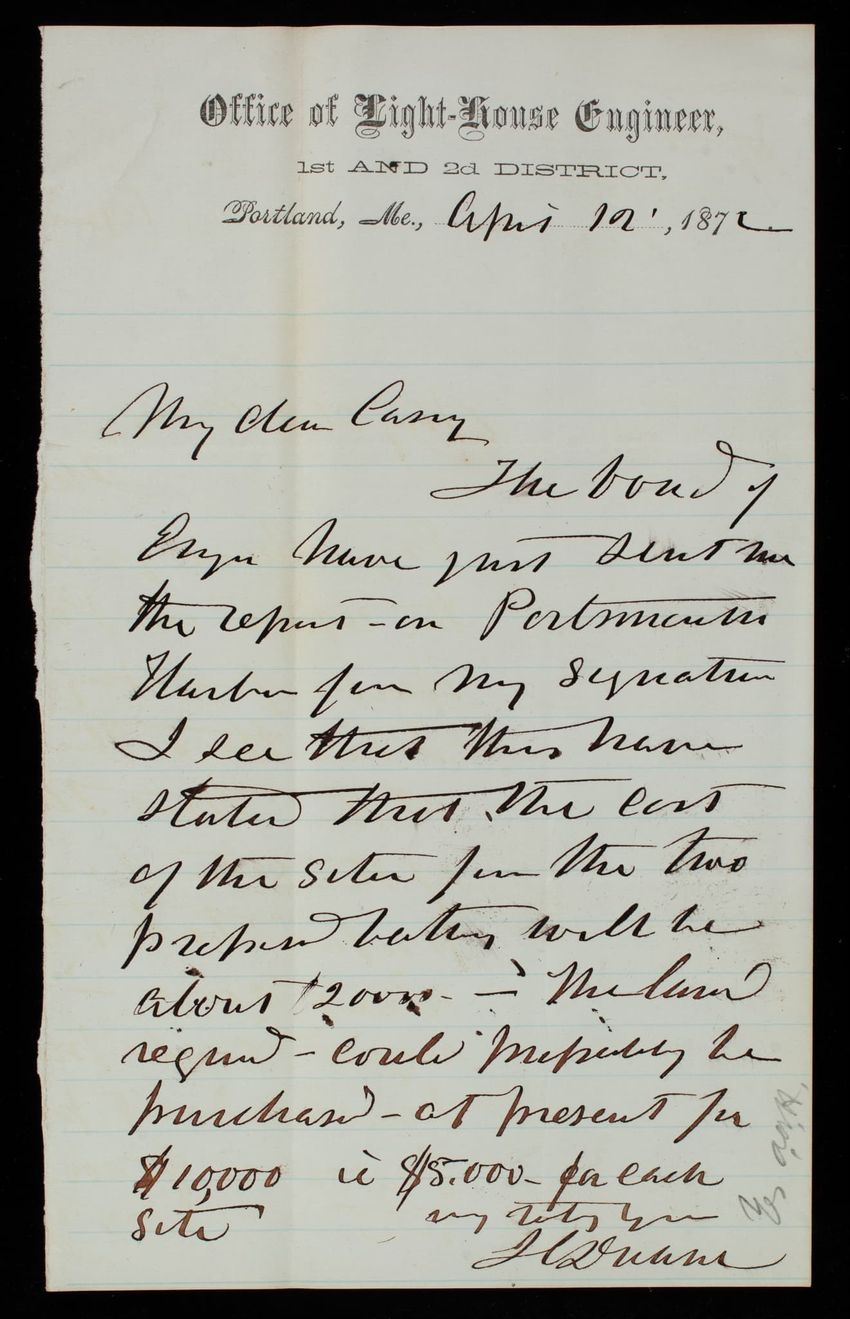 Office of Light-House Engineer,
1st AND 2d DISTRICT,
Portland, Me., April 12, 1872
My dear Casey
The board of
Engrs have just sent me
the report - on Portsmouth
Harbor for my signature
I see that they have
stated that the cost
of the sites for the two
proposed batteries will be
about $20000 - The land
required - could probably be
purchased - at present for
$10,000 ie $5.000 - for each
site
very truly yours
J C Duane